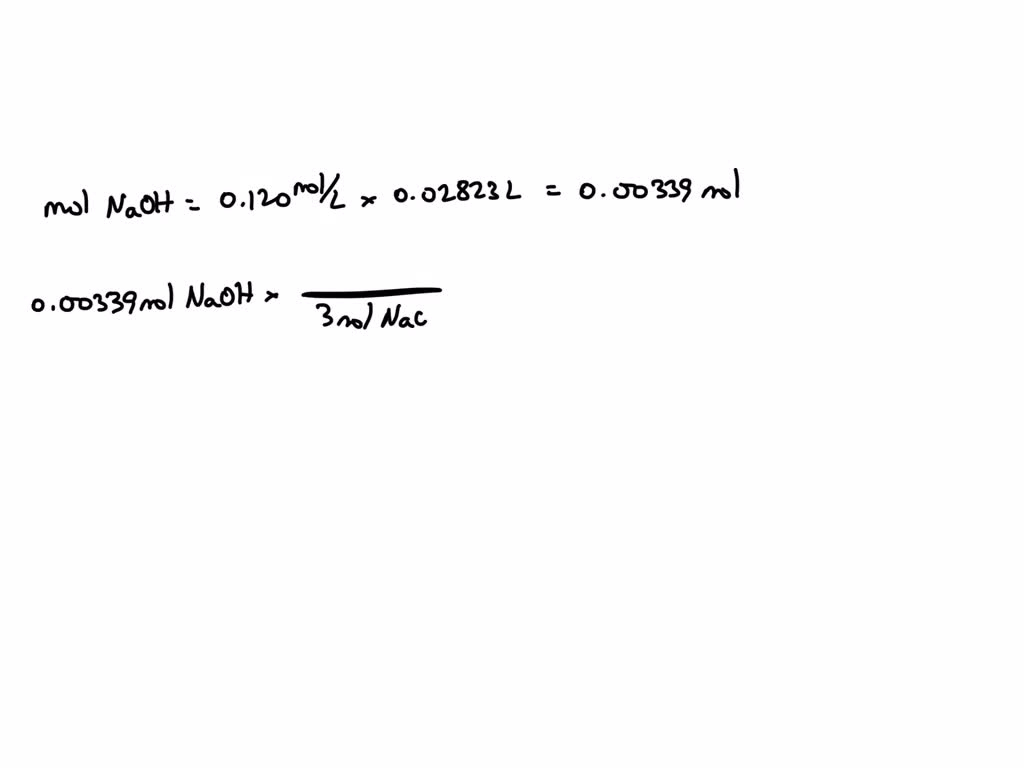 mol NaOH = 0.120 mol/L × 0.02823 L = 0.00339 mol
0.00339 mol NaOH × 3 mol Nac